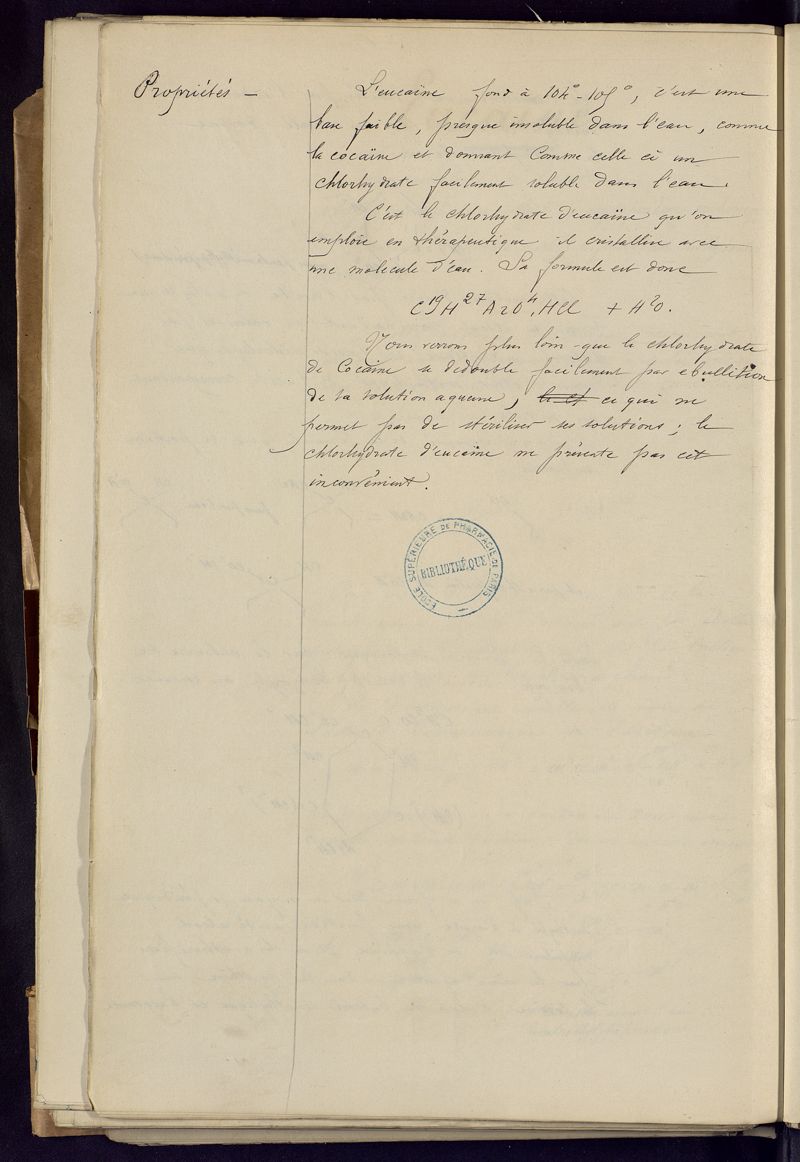 Propriétés —
L'eucaïne fond à 104° - 105°, c'est une
base faible, presque insoluble dans l'eau, comme
la cocaïne et donnant comme celle ci un
chlorhydrate facilement soluble dans l'eau.
C'est le chlorhydrate d'eucaïne qu'on
emploie en thérapeutique il cristallise avec
une molécule d'eau. Sa formule est donc
C¹⁹H²⁷AzO⁴,HCl + H²O.
Nous verrons plus loin que le chlorhydrate
de Cocaïne se dédouble facilement par ebullition
de sa solution aqueuse, ce qui ne
permet pas de stériliser ses solutions; le
chlorhydrate d'eucaïne ne présente pas cet
inconvénient.
ÉCOLE SUPÉRIEURE DE PHARMACIE DE PARIS
BIBLIOTHÈQUE